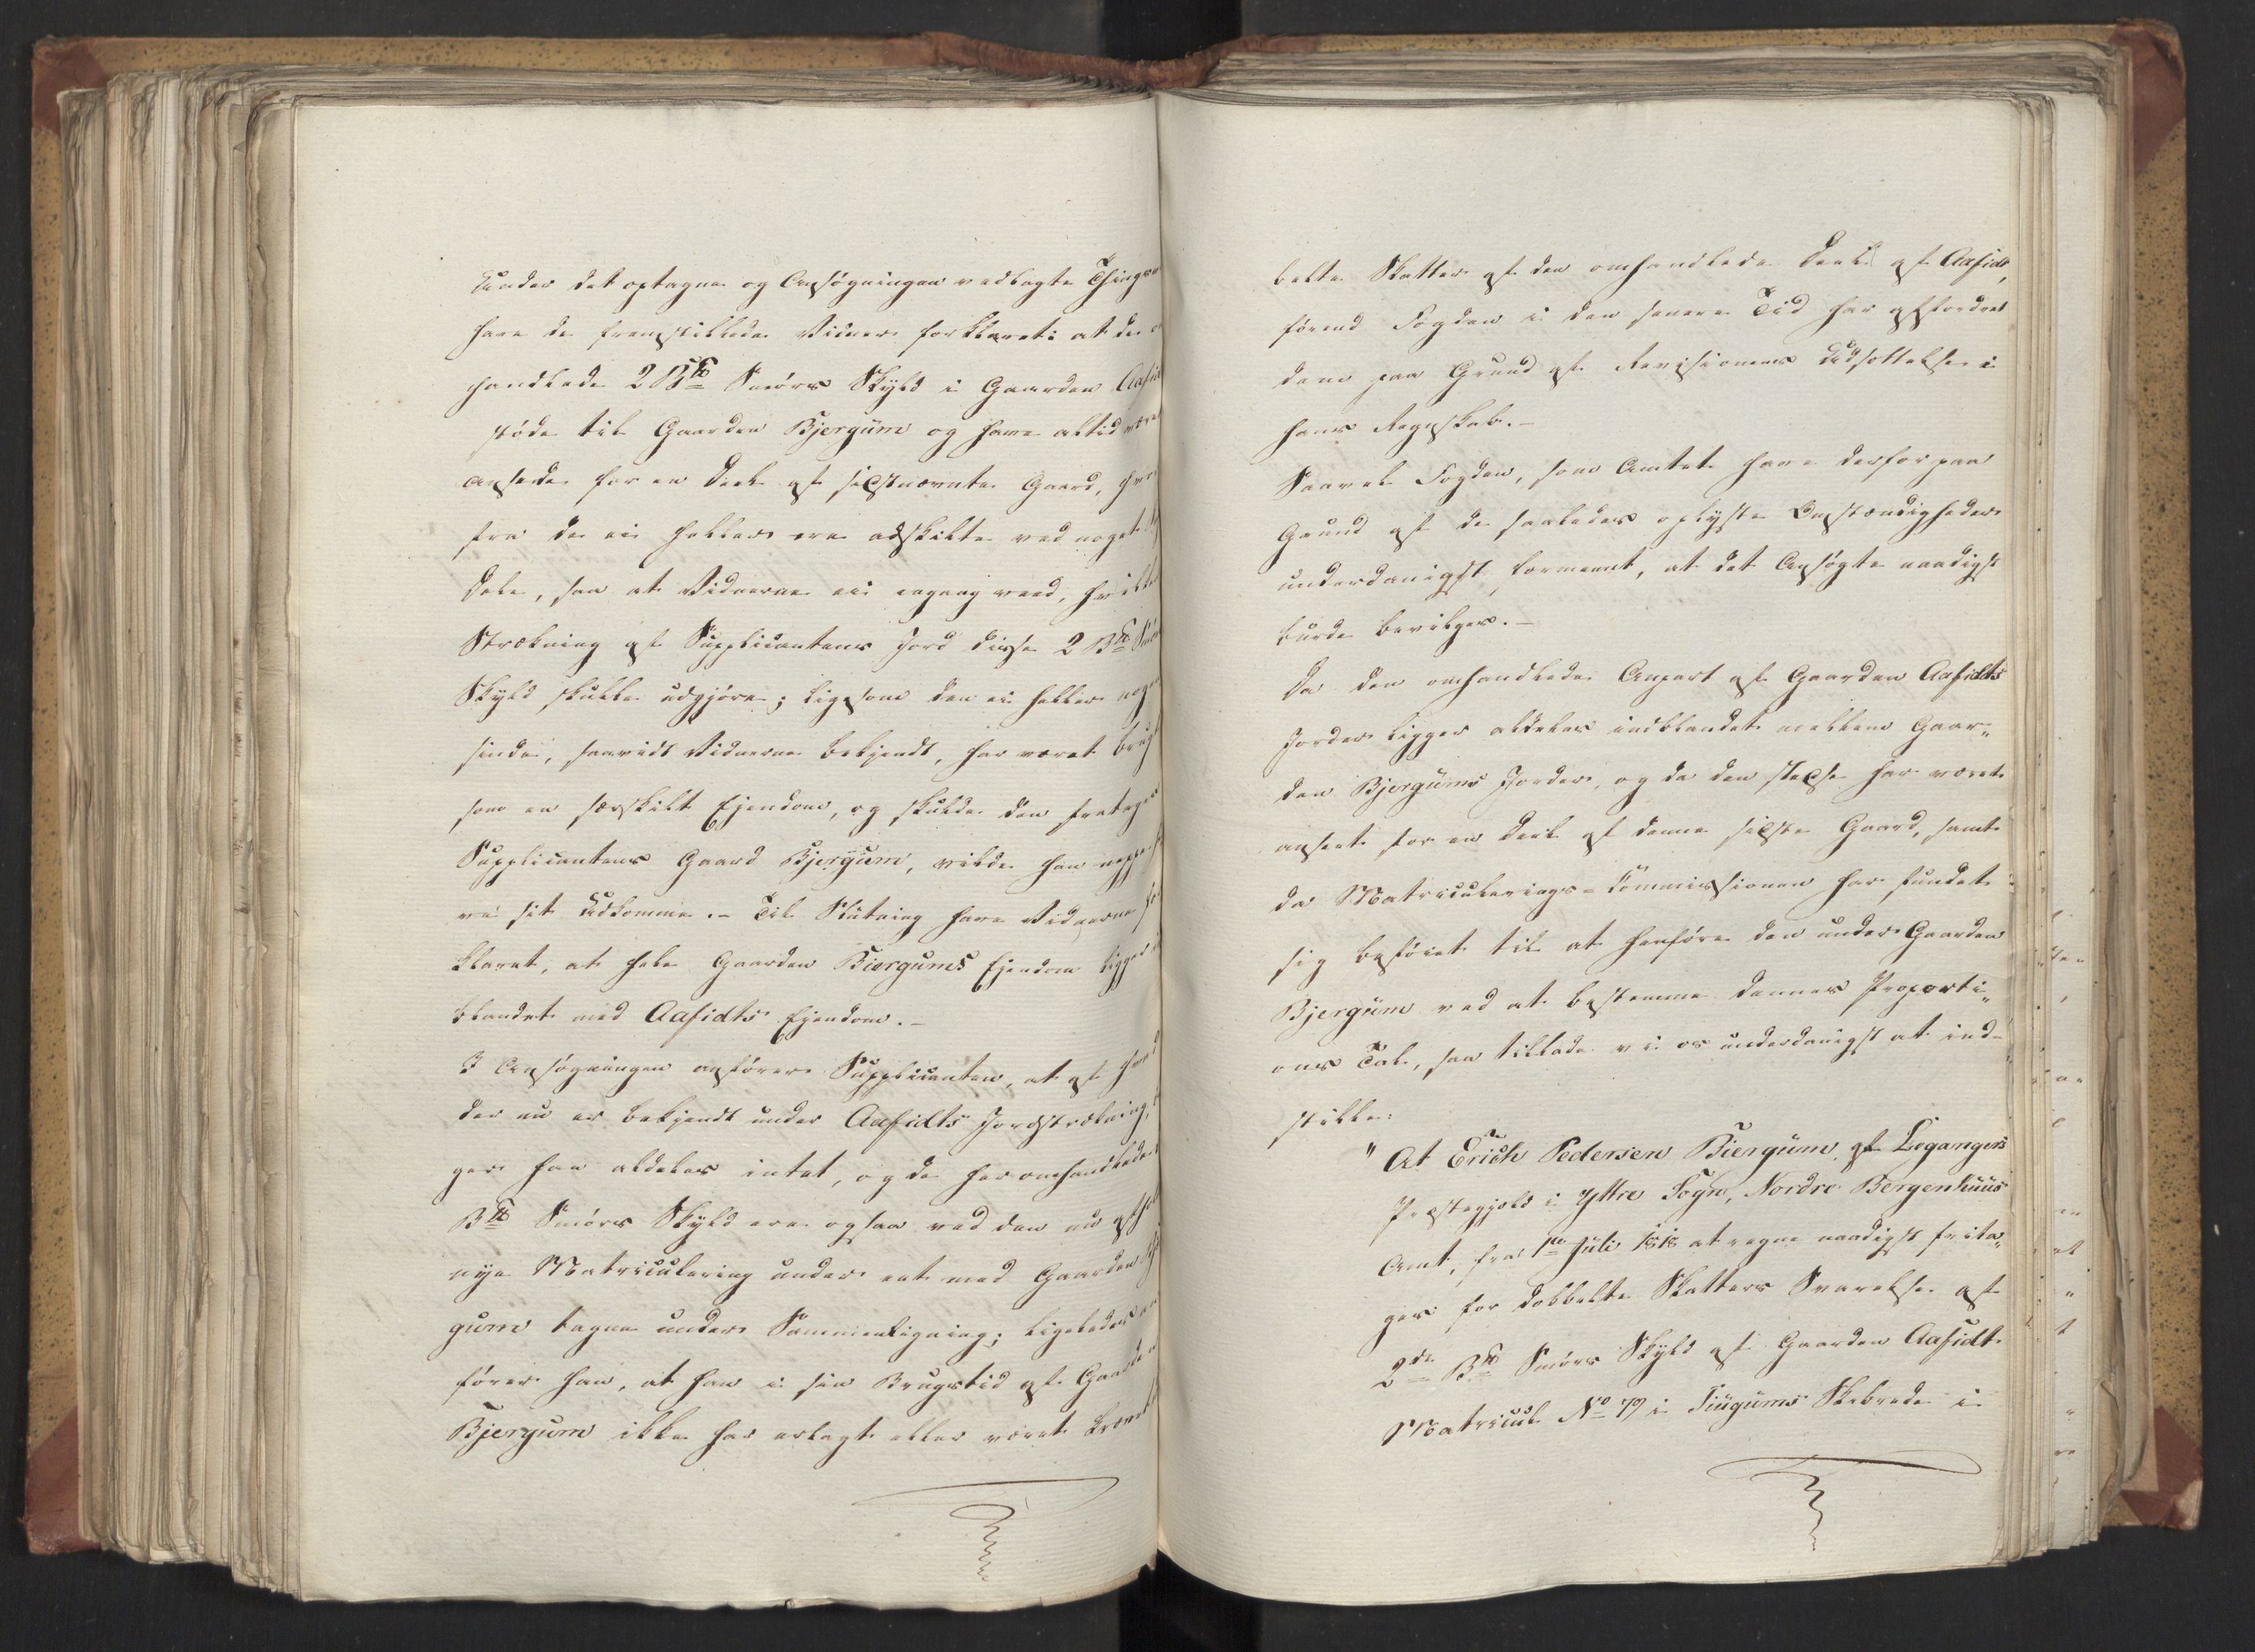 Under det optagne og Ansøgningen vedlagte Things
have de fremstillede Vidner forklaret: at de
handlede 2 B℔ Smørs Skyld i Gaarden Aafidt
støde til Gaarden Bjergum og have altid været
ansede for en Deel af sidstnævnte Gaard, hvor
fra de ei heller ere adskilte ved noget
Dele, saa at Vidnerne ei engang veed, hvilken
Strækning af Supplicantens Jord disse 2 B℔ Smørs
Skyld skulle udgjøre; ligesom den ei heller nogen
sinde, saavidt Vidnerne bekjendt, har været brugt
som en særskilt Ejendom, og skulde den fratages
Supplicantens Gaard Bjergum, vilde han neppe
sit Udkomme. - Til Slutning have Vidnerne for
klaret, at hele Gaarden Biergums Ejendom ligger
blandet med Aafidts Ejendom. -
I Ansøgningen anfører Supplicanten, at af hvad
der nu er bekjendt under Aafidts Jordstrækning,
ger han aldeles intet, og de her omhandlede
B℔ Smørs Skyld ere ogsaa ved den nu
nye Matriculering under eet med Gaarden
gum tagne under Sammenligning; ligeledes an
fører han, at han i sin Brugstid af Gaarden
Bjergum ikke har erlagt eller været krævet
belte Skatter af den omhandlede Deel af Aafidt,
førend Fogden i den senere Tid har affordret
dem paa Grund af Revisionens Udsættelse i
hans Regnskab. -
Saavel Fogden, som Amtet have derfor paa
Grund af de saaledes oplyste Omstændigheder
underdanigst formeent, at det Ansøgte naadigst
burde bevilges. -
Da den omhandlede Anpart af Gaarden Aafidts
Jorder ligger aldeles indblandet mellem Gaar„
den Bjergums Jorder, og da den stedse har været
anseet for en Deel af denne sidste Gaard, samt
da Matriculerings-Commissionen har fundet
sig beføiet til at henføre den under Gaarden
Bjergum ved at bestemme dennes Proporti„
ons Tal, saa tillade vi os underdanigst at ind-
stille:
"At Erich Pedersen Biergum, af Legangers
Præstegjeld i Yttre Sogn, Nordre Bergenhuus
Amt, fra 1te Juli 1818 at regne naadigst frita„
ges for dobbelte Skatters Svarelse af
2de B℔ Smørs Skyld af Gaarden Aafidt
Matricul No 79 i Tiugums Skibrede i